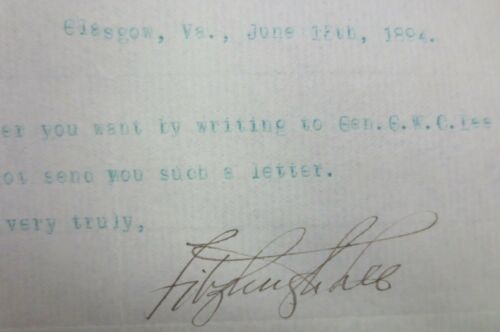 Glasgow, Va., June 12th, 1894.
er you want by writing to Gen.G.W.C.Lee
ot send you such a letter.
very truly,
Fitzhugh Lee